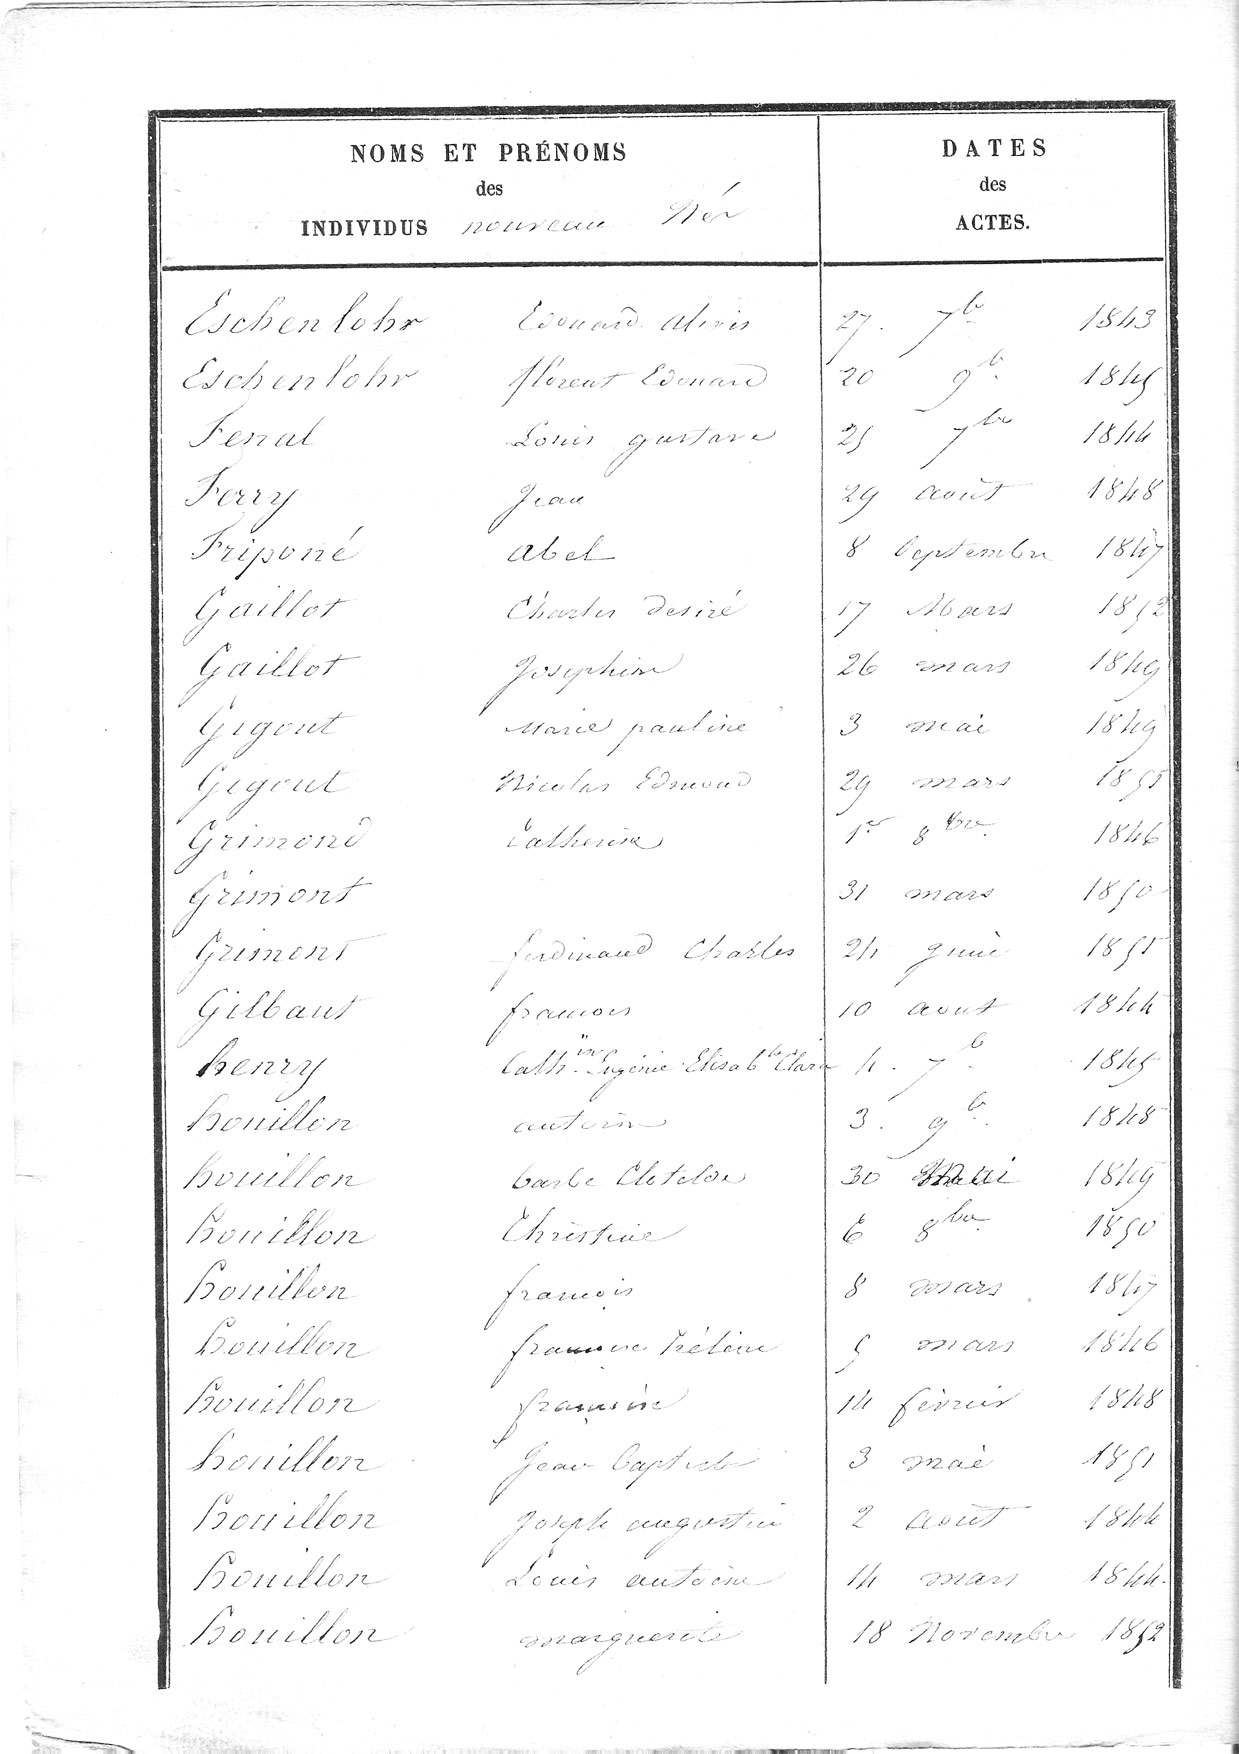 NOMS ET PRÉNOMS
des
INDIVIDUS nouveau Nés
DATES
des
ACTES.
Eschenlohr Edouard alexis 27. 7b 1843
Eschenlohr florent Edouard 20 9b. 1845
Fenal Louis gustave 25 7bre 1844
Ferry Jean 29 août 1848
Friponé abel 8 Septembre 1847
Gaillot Charles desiré 17 Mars 1852
Gaillot Josephine 26 mars 1849
Gigout Marie pauline 3 mai 1849
Gigout Nicolas Edmond 29 mars 1851
Grimond Catherine 1er 8bre 1846
Grimont 31 mars 1850
Grimont ferdinand Charles 24 juin 1851
Gilbaut francois 10 aout 1844
henry Cathine Eugénie Elisabth Clara 4. 7b 1845
houillon antoine 3. 9b. 1848
houillon barbe Clotilde 30 Mai 1849
houillon Christine 6 8bre 1850
houillon françois 8 mars 1847
houillon hélène 5 mars 1846
houillon françoise 14 février 1848
houillon Jean baptiste 3 mai 1851
houillon joseph augustin 2 août 1844
houillon Louis antoine 14 mars 1844.
houillon marguerite 18 Novembre 1852